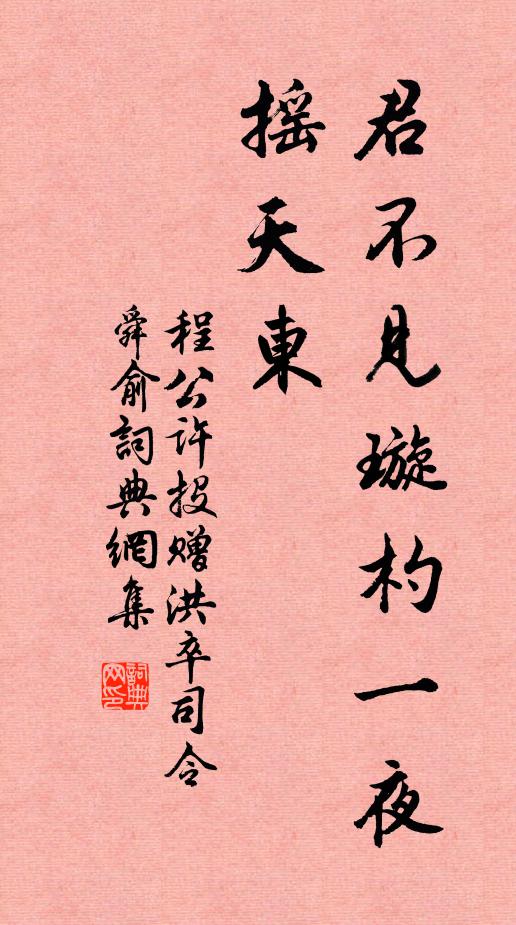 君不见璇杓一夜
摇天東
程公许投赠洪卒司令
舜俞詞典網集
詞典网印